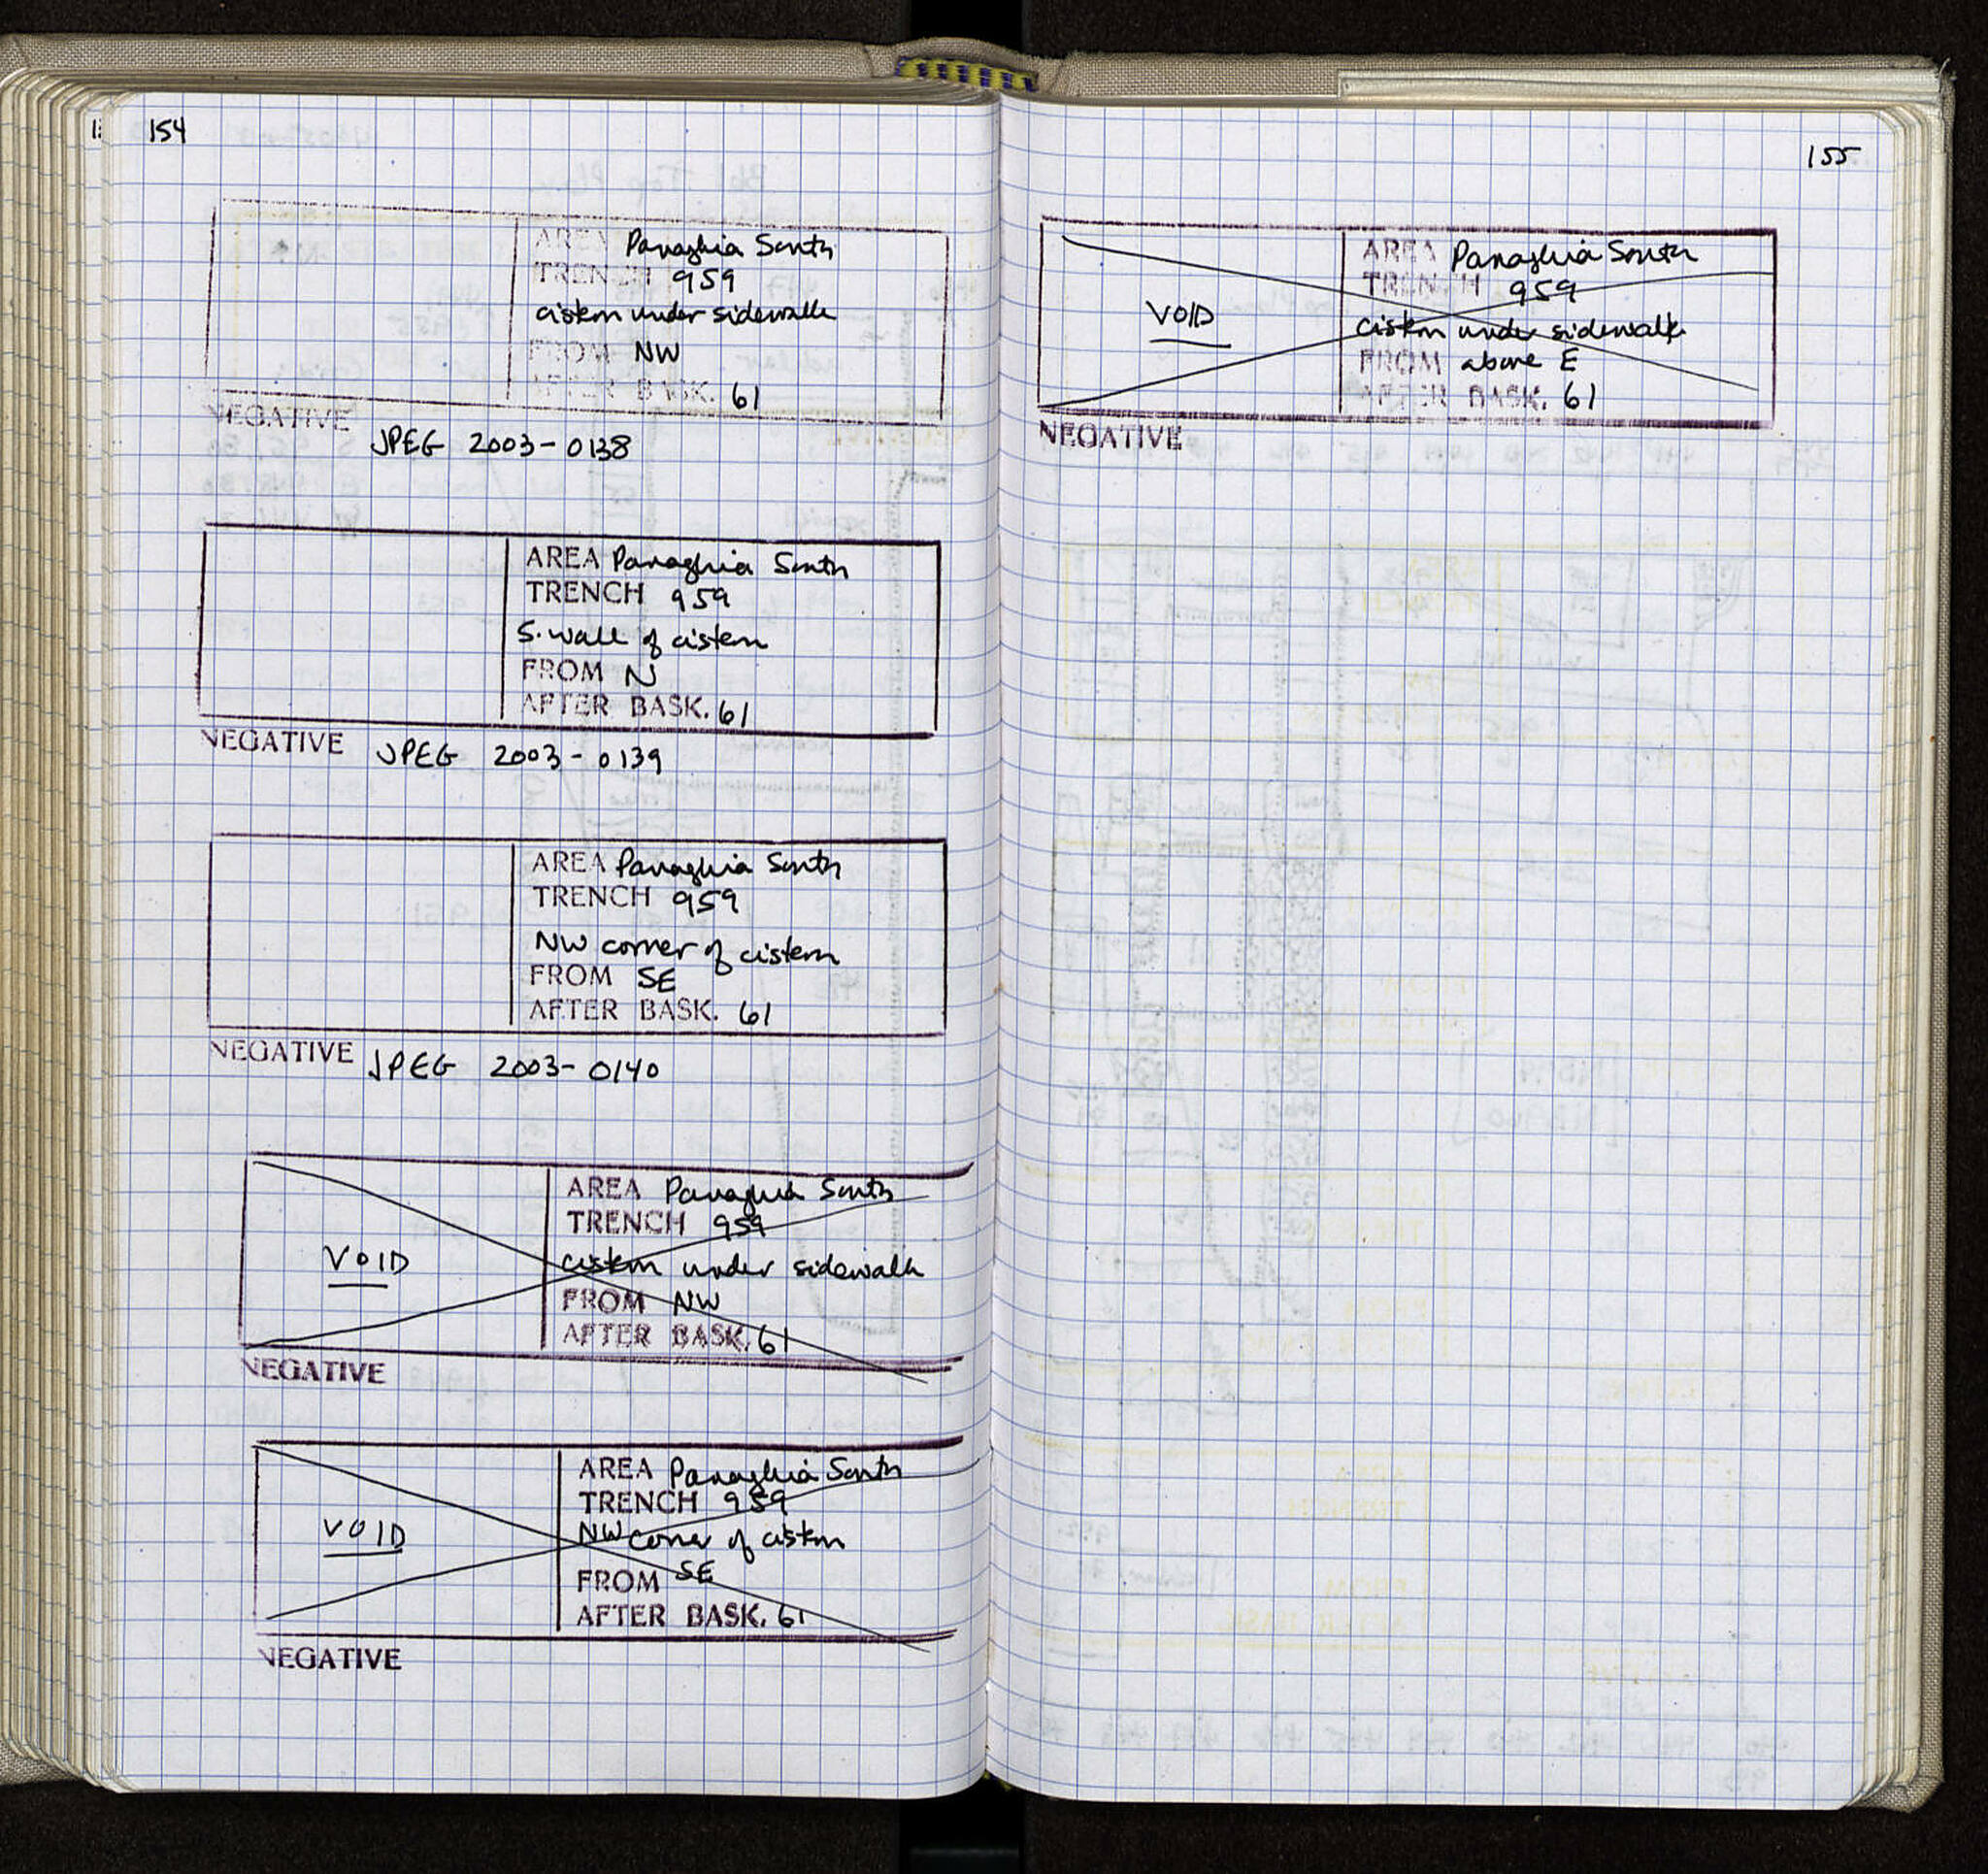 154
AREA Panaghia South
TRENCH 959
cistern under sidewalk
FROM NW
AFTER BASK. 61
NEGATIVE JPEG 2003-0138
AREA Panaghia South
TRENCH 959
S. wall of cistern
FROM N
AFTER BASK. 61
NEGATIVE JPEG 2003-0139
AREA Panaghia South
TRENCH 959
NW corner of cistern
FROM SE
AFTER BASK. 61
NEGATIVE JPEG 2003-0140
AREA Panaghia South
TRENCH 959
VOID
cistern under sidewalk
FROM NW
AFTER BASK. 61
NEGATIVE
AREA Panaghia South
TRENCH 959
VOID
NW corner of cistern
FROM SE
AFTER BASK. 61
NEGATIVE
155
AREA Panaghia South
TRENCH 959
VOID
cistern under sidewalk
FROM above E
AFTER BASK. 61
NEGATIVE